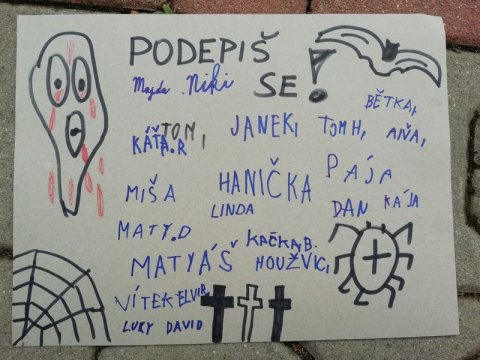 PODEPIŠ
SE!
Majda. Niki
BĚTKA,
TOM,
KÁŤA.R
JANEK,
TOM H,
AŇA,
PÁJA
MIŠA
HANIČKA
KÁJA
LINDA
DAN
MATY.D
KAČKA,B.
MATYÁŠ
HOUŽVIC,
VÍTEK
ELVIR
LUKY DAVID